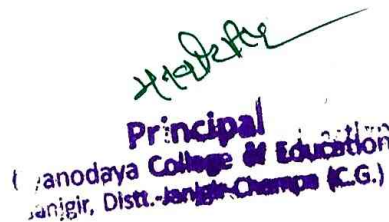 Principal
anodaya College of Education
anjgir, Distt.-Janjgir-Champa (C.G.)